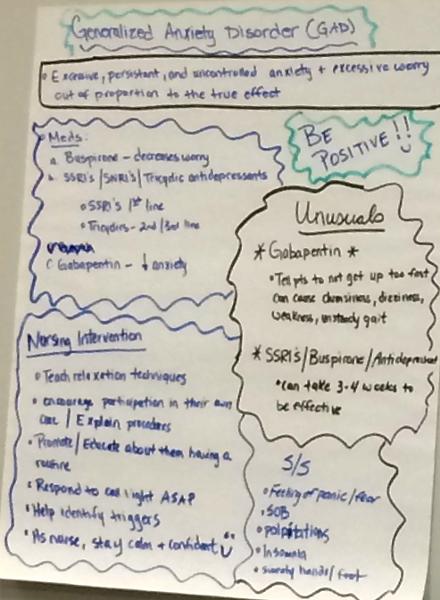 Generalized Anxiety Disorder (GAD)
• Excessive, persistant, and uncontrolled anxiety + excessive worry
out of proportion to the true effect
BE
POSITIVE!!
• Meds:
a. Buspirone - decreases worry
b. SSRI's/SNRI's/Tricyclic antidepressants
• SSRI's 1st line
• Tricyclics - 2nd/3rd line
C Gabapentin - ↓ anxiety
Unusuals
* Gabapentin *
• Tell pts to not get up too fast
can cause clumsiness, dizziness,
weakness, unsteady gait
* SSRI's/Buspirone/Antidepressant
• can take 3-4 weeks to
be effective
Nursing Intervention
• Teach relaxation techniques
• encourage participation in their own
care / Explain procedures
• Promote/Educate about them having a
routine
• Respond to call light ASAP
• Help identify triggers
• As nurse, stay calm + confident
S/S
• Feeling of panic/fear
• SOB
• palpitations
• Insomnia
• sweaty hands/feet